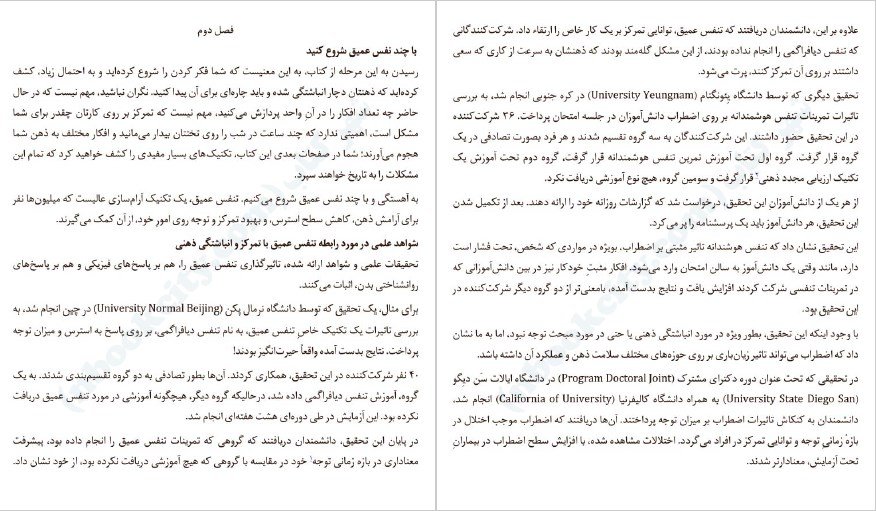 فصل دوم
با چند نفس عمیق شروع کنید
رسیدن به این مرحله از کتاب، به این معنیست که شما فکر کردن را شروع کرده‌اید و به احتمال زیاد، کشف
کرده‌اید که ذهنتان دچار انباشتگی شده و باید چاره‌ای برای آن پیدا کنید. نگران نباشید، مهم نیست که در حال
حاضر چه تعداد افکار را در آن واحد پردازش می‌کنید، مهم نیست که تمرکز بر روی کارتان چقدر برای شما
مشکل است، اهمیتی ندارد که چند ساعت در شب را روی تختتان بیدار می‌مانید و افکار مختلف به ذهن شما
هجوم می‌آورند؛ شما در صفحات بعدی این کتاب، تکنیک‌های بسیار مفیدی را کشف خواهید کرد که تمام این
مشکلات را به تاریخ خواهند سپرد.
به آهستگی و با چند نفس عمیق شروع می‌کنیم. تنفس عمیق، یک تکنیک آرام‌سازی عالیست که میلیون‌ها نفر
برای آرامش ذهن، کاهش سطح استرس، و بهبود تمرکز و توجه روی امور خود، از آن کمک می‌گیرند.
شواهد علمی در مورد رابطه تنفس عمیق با تمرکز و انباشتگی ذهنی
تحقیقات علمی و شواهد ارائه شده، تاثیرگذاری تنفس عمیق را، هم بر پاسخ‌های فیزیکی و هم بر پاسخ‌های
روانشناختی بدن، اثبات می‌کنند.
برای مثال، یک تحقیق که توسط دانشگاه نرمال پکن (University Normal Beijing) در چین انجام شد، به
بررسی تاثیرات یک تکنیک خاصِ تنفس عمیق، به نام تنفس دیافراگمی، بر روی پاسخ به استرس و میزان توجه
پرداخت. نتایج بدست آمده واقعاً حیرت‌انگیز بودند!
۴۰ نفر شرکت‌کننده در این تحقیق، همکاری کردند. آن‌ها بطور تصادفی به دو گروه تقسیم‌بندی شدند. به یک
گروه، آموزش تنفس دیافراگمی داده شد، درحالیکه گروه دیگر، هیچگونه آموزشی در مورد تنفس عمیق دریافت
نکرده بود. این آزمایش در طی دوره‌ای هشت هفته‌ای انجام شد.
در پایان این تحقیق، دانشمندان دریافتند که گروهی که تمرینات تنفس عمیق را انجام داده بود، پیشرفت
معناداری در بازه زمانی توجه۱ خود در مقایسه با گروهی که هیچ آموزشی دریافت نکرده بود، از خود نشان داد.
علاوه بر این، دانشمندان دریافتند که تنفس عمیق، توانایی تمرکز بر یک کار خاص را ارتقاء داد. شرکت‌کنندگانی
که تنفس دیافراگمی را انجام نداده بودند، از این مشکل گله‌مند بودند که ذهنشان به سرعت از کاری که سعی
داشتند بر روی آن تمرکز کنند، پرت می‌شود.
تحقیق دیگری که توسط دانشگاه یئونگنام (University Yeungnam) در کره جنوبی انجام شد، به بررسی
تاثیرات تمرینات تنفس هوشمندانه بر روی اضطراب دانش‌آموزان در جلسه امتحان پرداخت. ۳۶ شرکت‌کننده
در این تحقیق حضور داشتند. این شرکت‌کنندگان به سه گروه تقسیم شدند و هر فرد بصورت تصادفی در یک
گروه قرار گرفت. گروه اول تحت آموزش تمرین تنفس هوشمندانه قرار گرفت، گروه دوم تحت آموزش یک
تکنیک ارزیابی مجدد ذهنی۲ قرار گرفت و سومین گروه، هیچ نوع آموزشی دریافت نکرد.
از هر یک از دانش‌آموزانِ این تحقیق، درخواست شد که گزارشات روزانه خود را ارائه دهند. بعد از تکمیل شدن
این تحقیق، هر دانش‌آموز باید یک پرسشنامه را پر می‌کرد.
این تحقیق نشان داد که تنفس هوشندانه تاثیر مثبتی بر اضطراب، بویژه در مواردی که شخص، تحت فشار است
دارد، مانند وقتی یک دانش‌آموز به سالن امتحان وارد می‌شود. افکار مثبتِ خودکار نیز در بین دانش‌آموزانی که
در تمرینات تنفسی شرکت کردند افزایش یافت و نتایج بدست آمده، بامعنی‌تر از دو گروه دیگر شرکت‌کننده در
این تحقیق بود.
با وجود اینکه این تحقیق، بطور ویژه در مورد انباشتگی ذهنی یا حتی در مورد مبحث توجه نبود، اما به ما نشان
داد که اضطراب می‌تواند تاثیر زیان‌باری بر روی حوزه‌های مختلف سلامت ذهن و عملکرد آن داشته باشد.
در تحقیقی که تحت عنوان دوره دکترای مشترک (Program Doctoral Joint) در دانشگاه ایالات سَن دیِگو
(University State Diego San) به همراه دانشگاه کالیفرنیا (California of University) انجام شد،
دانشمندان به کنکاش تاثیرات اضطراب بر میزان توجه پرداختند. آن‌ها دریافتند که اضطراب موجب اختلال در
بازه زمانی توجه و توانایی تمرکز در افراد می‌گردد. اختلالات مشاهده شده، با افزایش سطح اضطراب در بیمارانِ
تحت آزمایش، معنادارتر شدند.